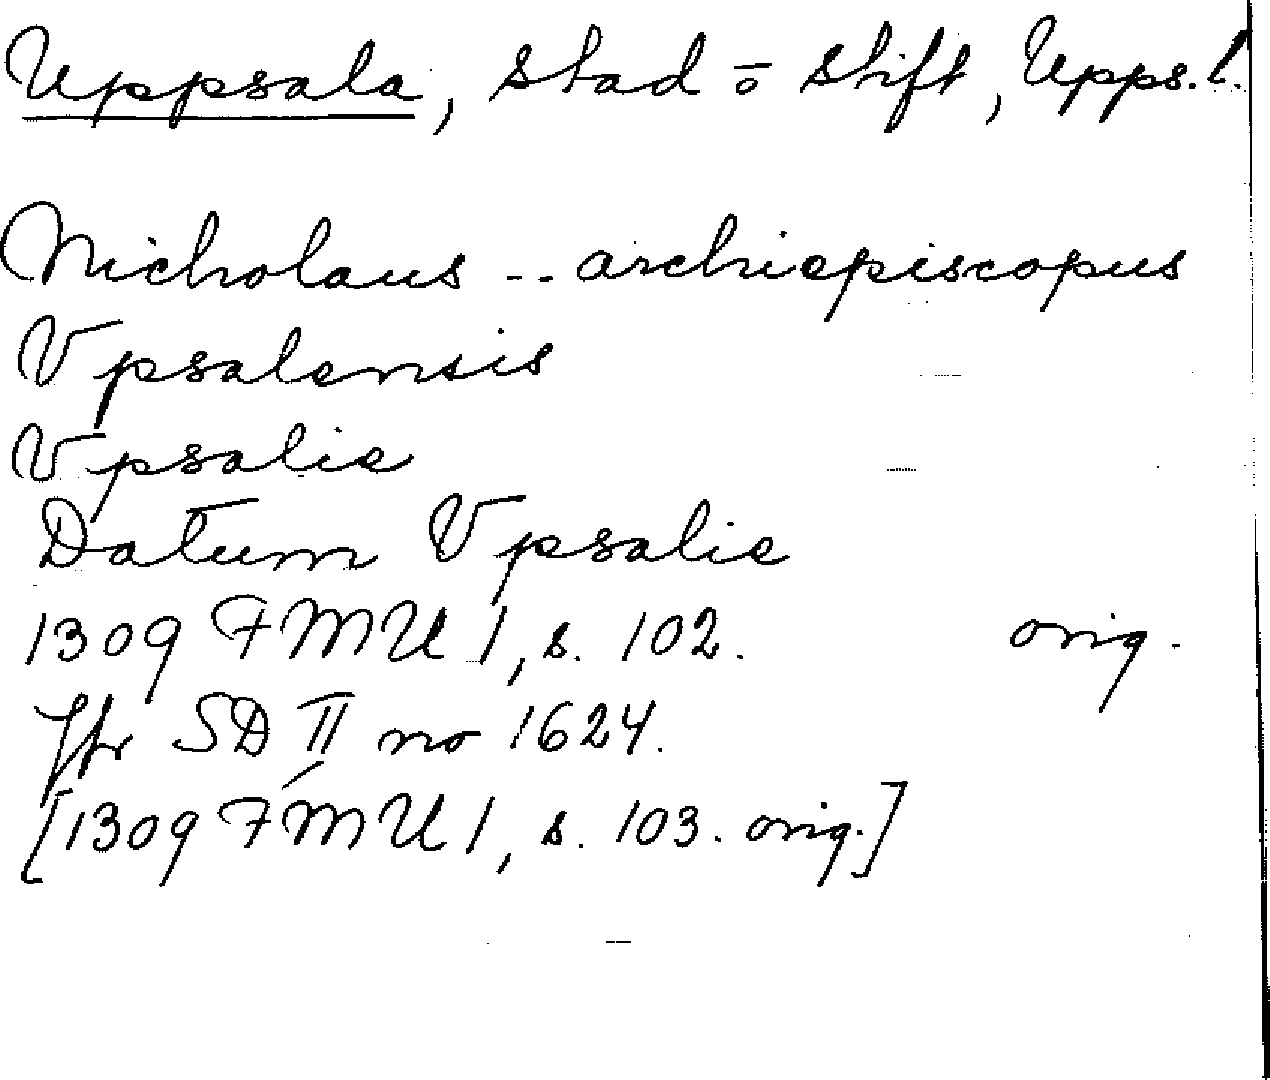 Uppsala, stad o stift, Upps. l.
Nicholaus -- archiepiscopus
Vpsalensis
Vpsalie
Datum Vpsalie
1309 FMU 1, s. 102. orig.
Jfr SD II no 1624.
[1309 FMU 1, s. 103. orig.]